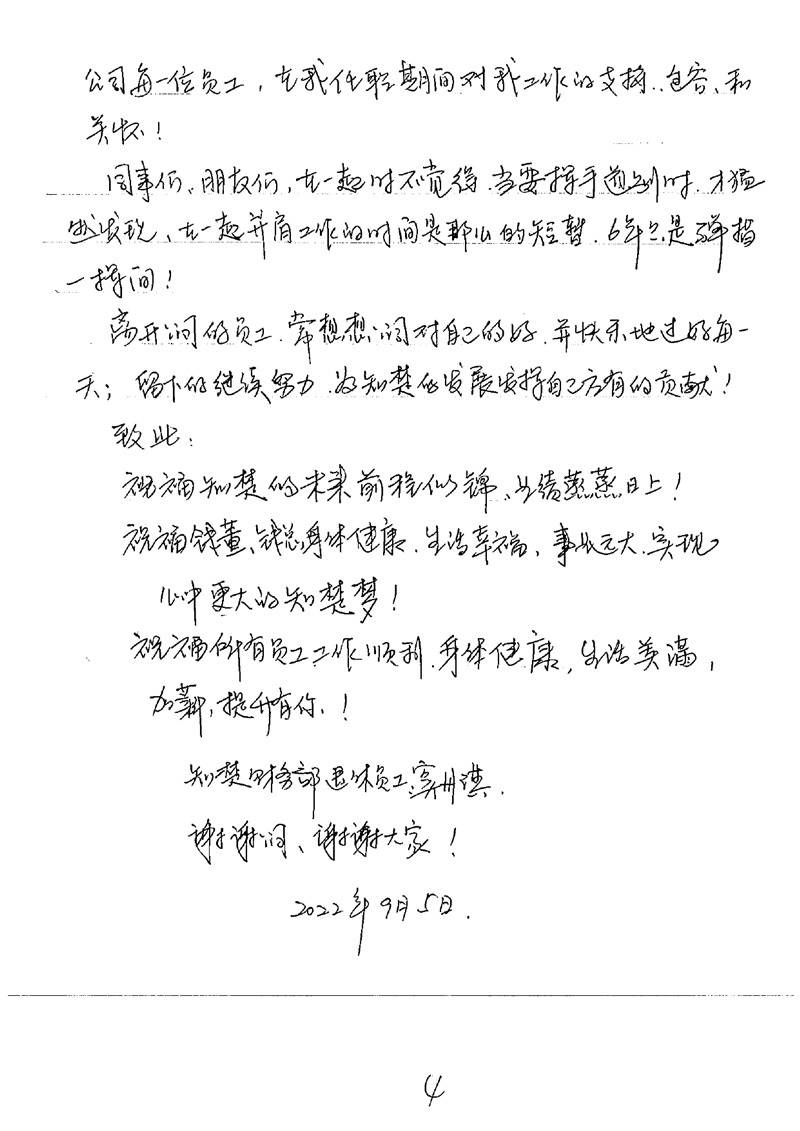 公司每一位员工，在我任职期间对我工作的支持、包容、和
关怀！
同事们、朋友们，在一起时不觉得，当要挥手道别时，才猛
然发现、在一起并肩工作的时间是那么的短暂，6年只是弹指
一挥间！
离开公司的员工，常想想公司对自己的好，并快乐地过好每一
天；留下的继续努力，为知楚的发展发挥自己应有的贡献！
致此：
祝福知楚的未来前程似锦、业绩蒸蒸日上！
祝福钱董、钱总身体健康，生活幸福，事业远大，实现
心中更大的知楚梦！
祝福所有员工工作顺利，身体健康，生活美满，
加薪，提升有你！
知楚财务部退休员工
谢谢公司、谢谢大家！
2022年9月5日.
4